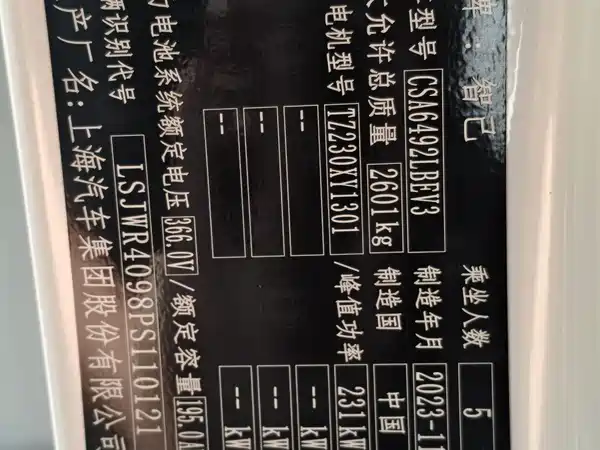 牌：智己 乘坐人数 5
型号 CSA6492LBEV3 制造年月 2023-11
允许总质量 2601kg 制造国 中国
电机型号 TZ230XY1301 /峰值功率 231kW
-- -- kW
-- -- kW
-- -- kW
力电池系统额定电压 366.0V /额定容量 195.0A
辆识别代号 LSJWR4098PS110121
产厂名：上海汽车集团股份有限公司